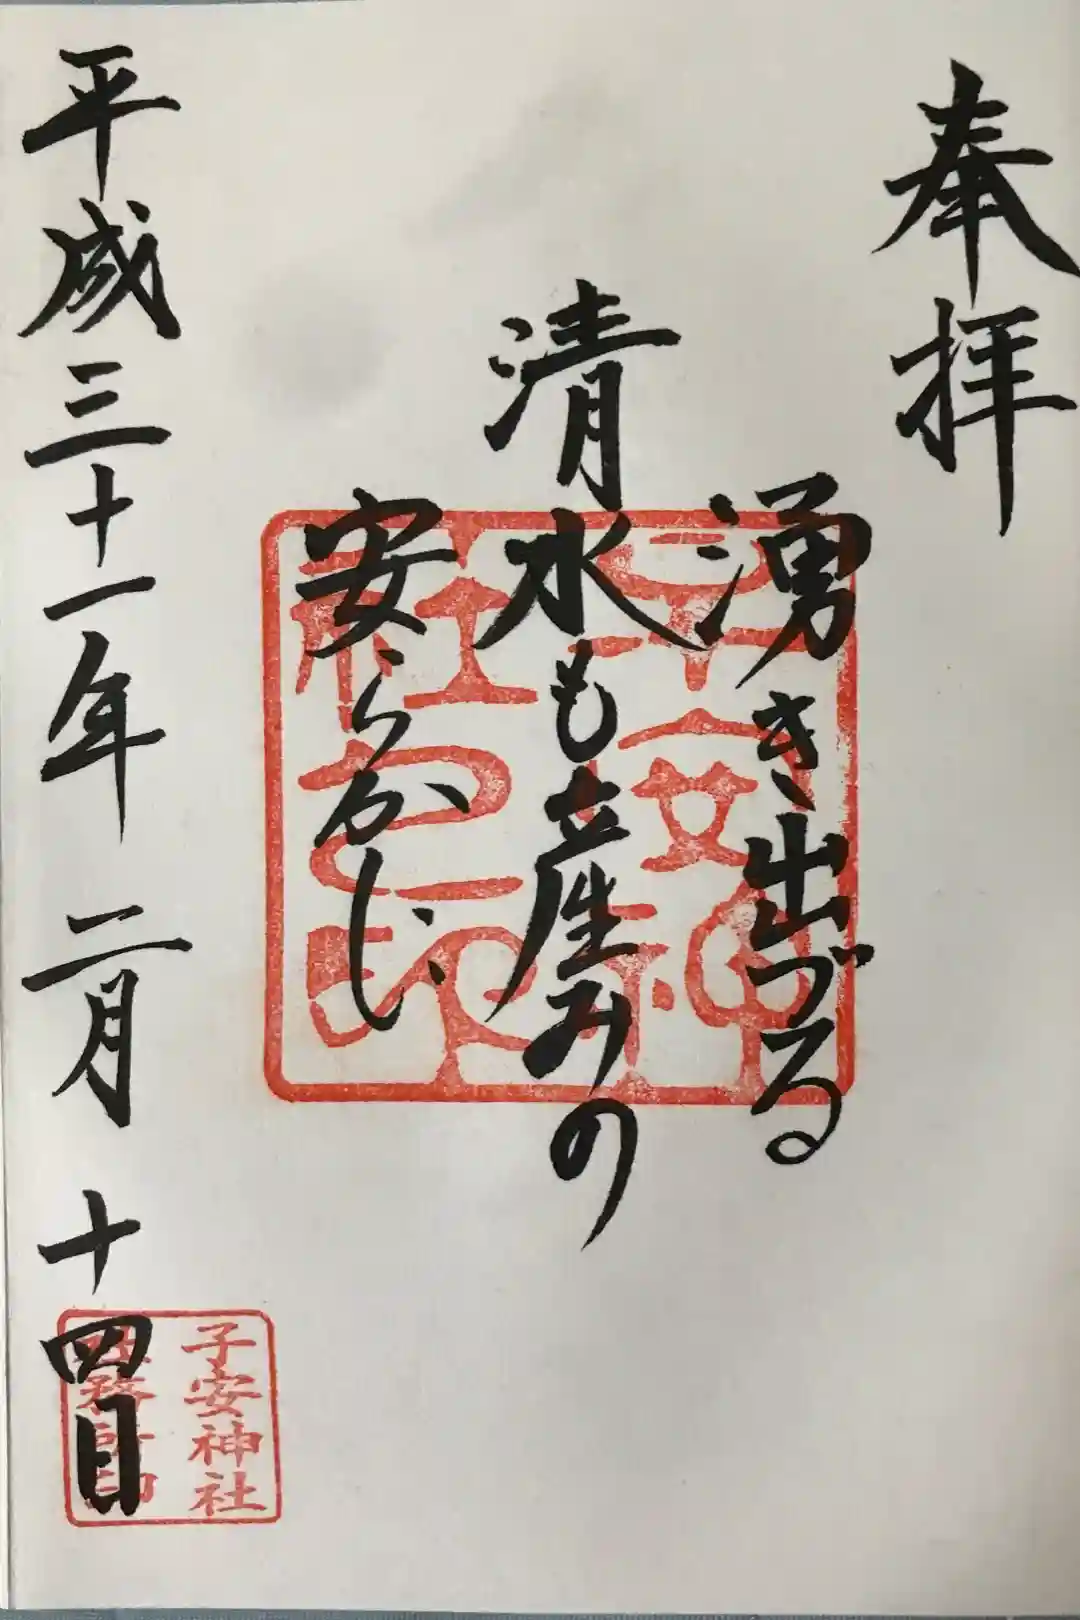 奉拝
湧き出づる
清水も産みの
安らかし
平成三十一年 二月 十四日
子安神社
社務所印
子安神
社之印